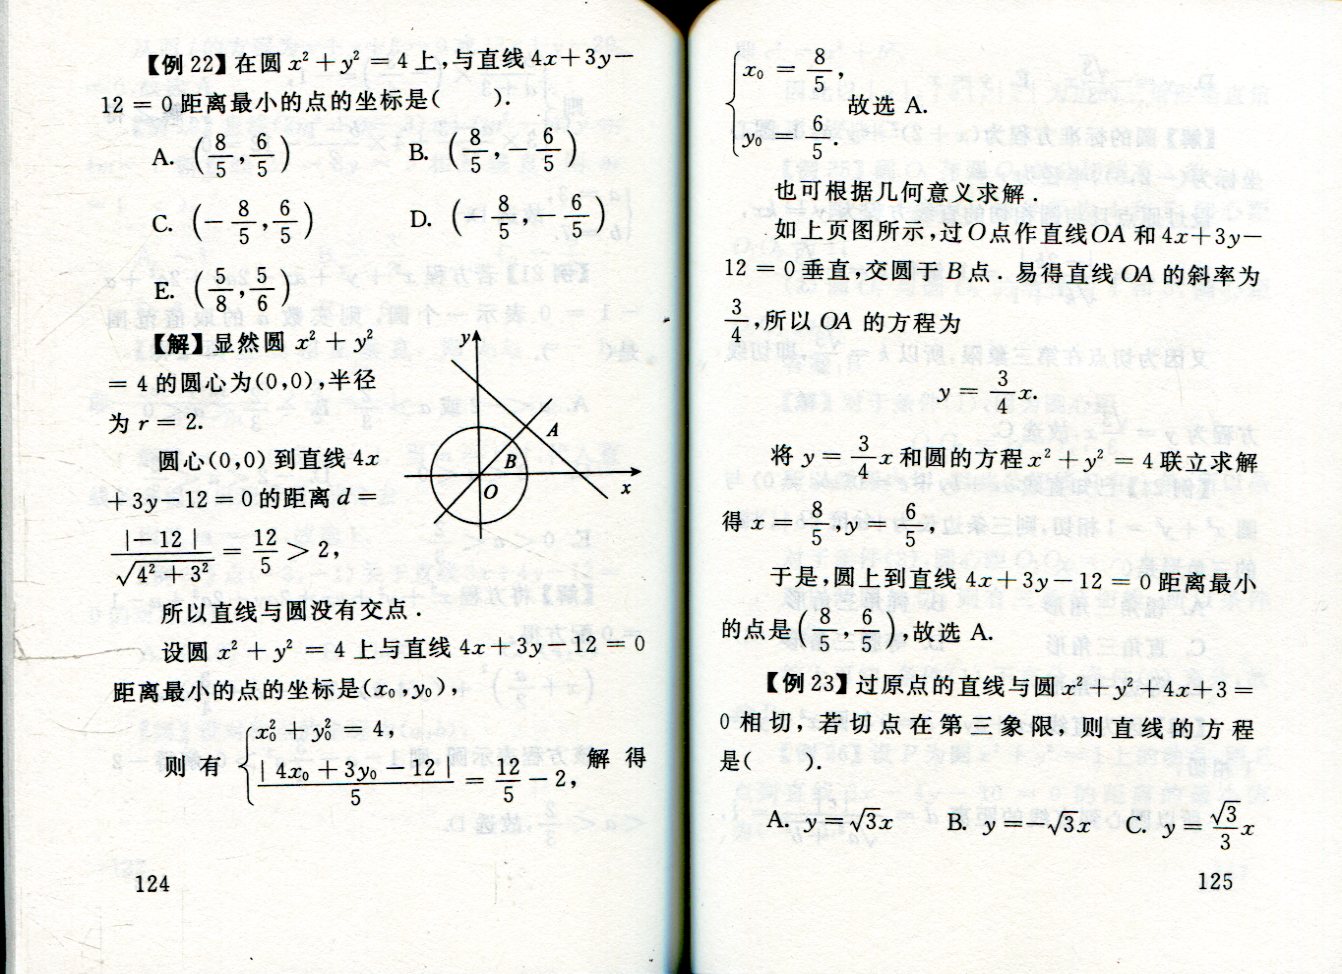 【例 22】在圆 x² + y² = 4 上,与直线 4x + 3y −
12 = 0 距离最小的点的坐标是(  ).
A. (8/5, 6/5)  B. (8/5, −6/5)
C. (−8/5, 6/5)  D. (−8/5, −6/5)
E. (5/8, 5/6)
【解】显然圆 x² + y²
= 4 的圆心为(0,0),半径
为 r = 2.
圆心(0,0)到直线 4x
+ 3y − 12 = 0 的距离 d =
|−12| / √(4² + 3²) = 12/5 > 2,
y
A
B
O
x
所以直线与圆没有交点.
设圆 x² + y² = 4 上与直线 4x + 3y − 12 = 0
距离最小的点的坐标是(x₀, y₀),
则有 { x₀² + y₀² = 4,
|4x₀ + 3y₀ − 12| / 5 = 12/5 − 2, 解得
124
{ x₀ = 8/5,
y₀ = 6/5. 故选 A.
也可根据几何意义求解.
如上页图所示,过 O 点作直线 OA 和 4x + 3y −
12 = 0 垂直,交圆于 B 点. 易得直线 OA 的斜率为
3/4,所以 OA 的方程为
y = 3/4 x.
将 y = 3/4 x 和圆的方程 x² + y² = 4 联立求解
得 x = 8/5, y = 6/5,
于是,圆上到直线 4x + 3y − 12 = 0 距离最小
的点是(8/5, 6/5),故选 A.
【例 23】过原点的直线与圆 x² + y² + 4x + 3 =
0 相切,若切点在第三象限,则直线的方程
是(  ).
A. y = √3x  B. y = −√3x  C. y = √3/3 x
125